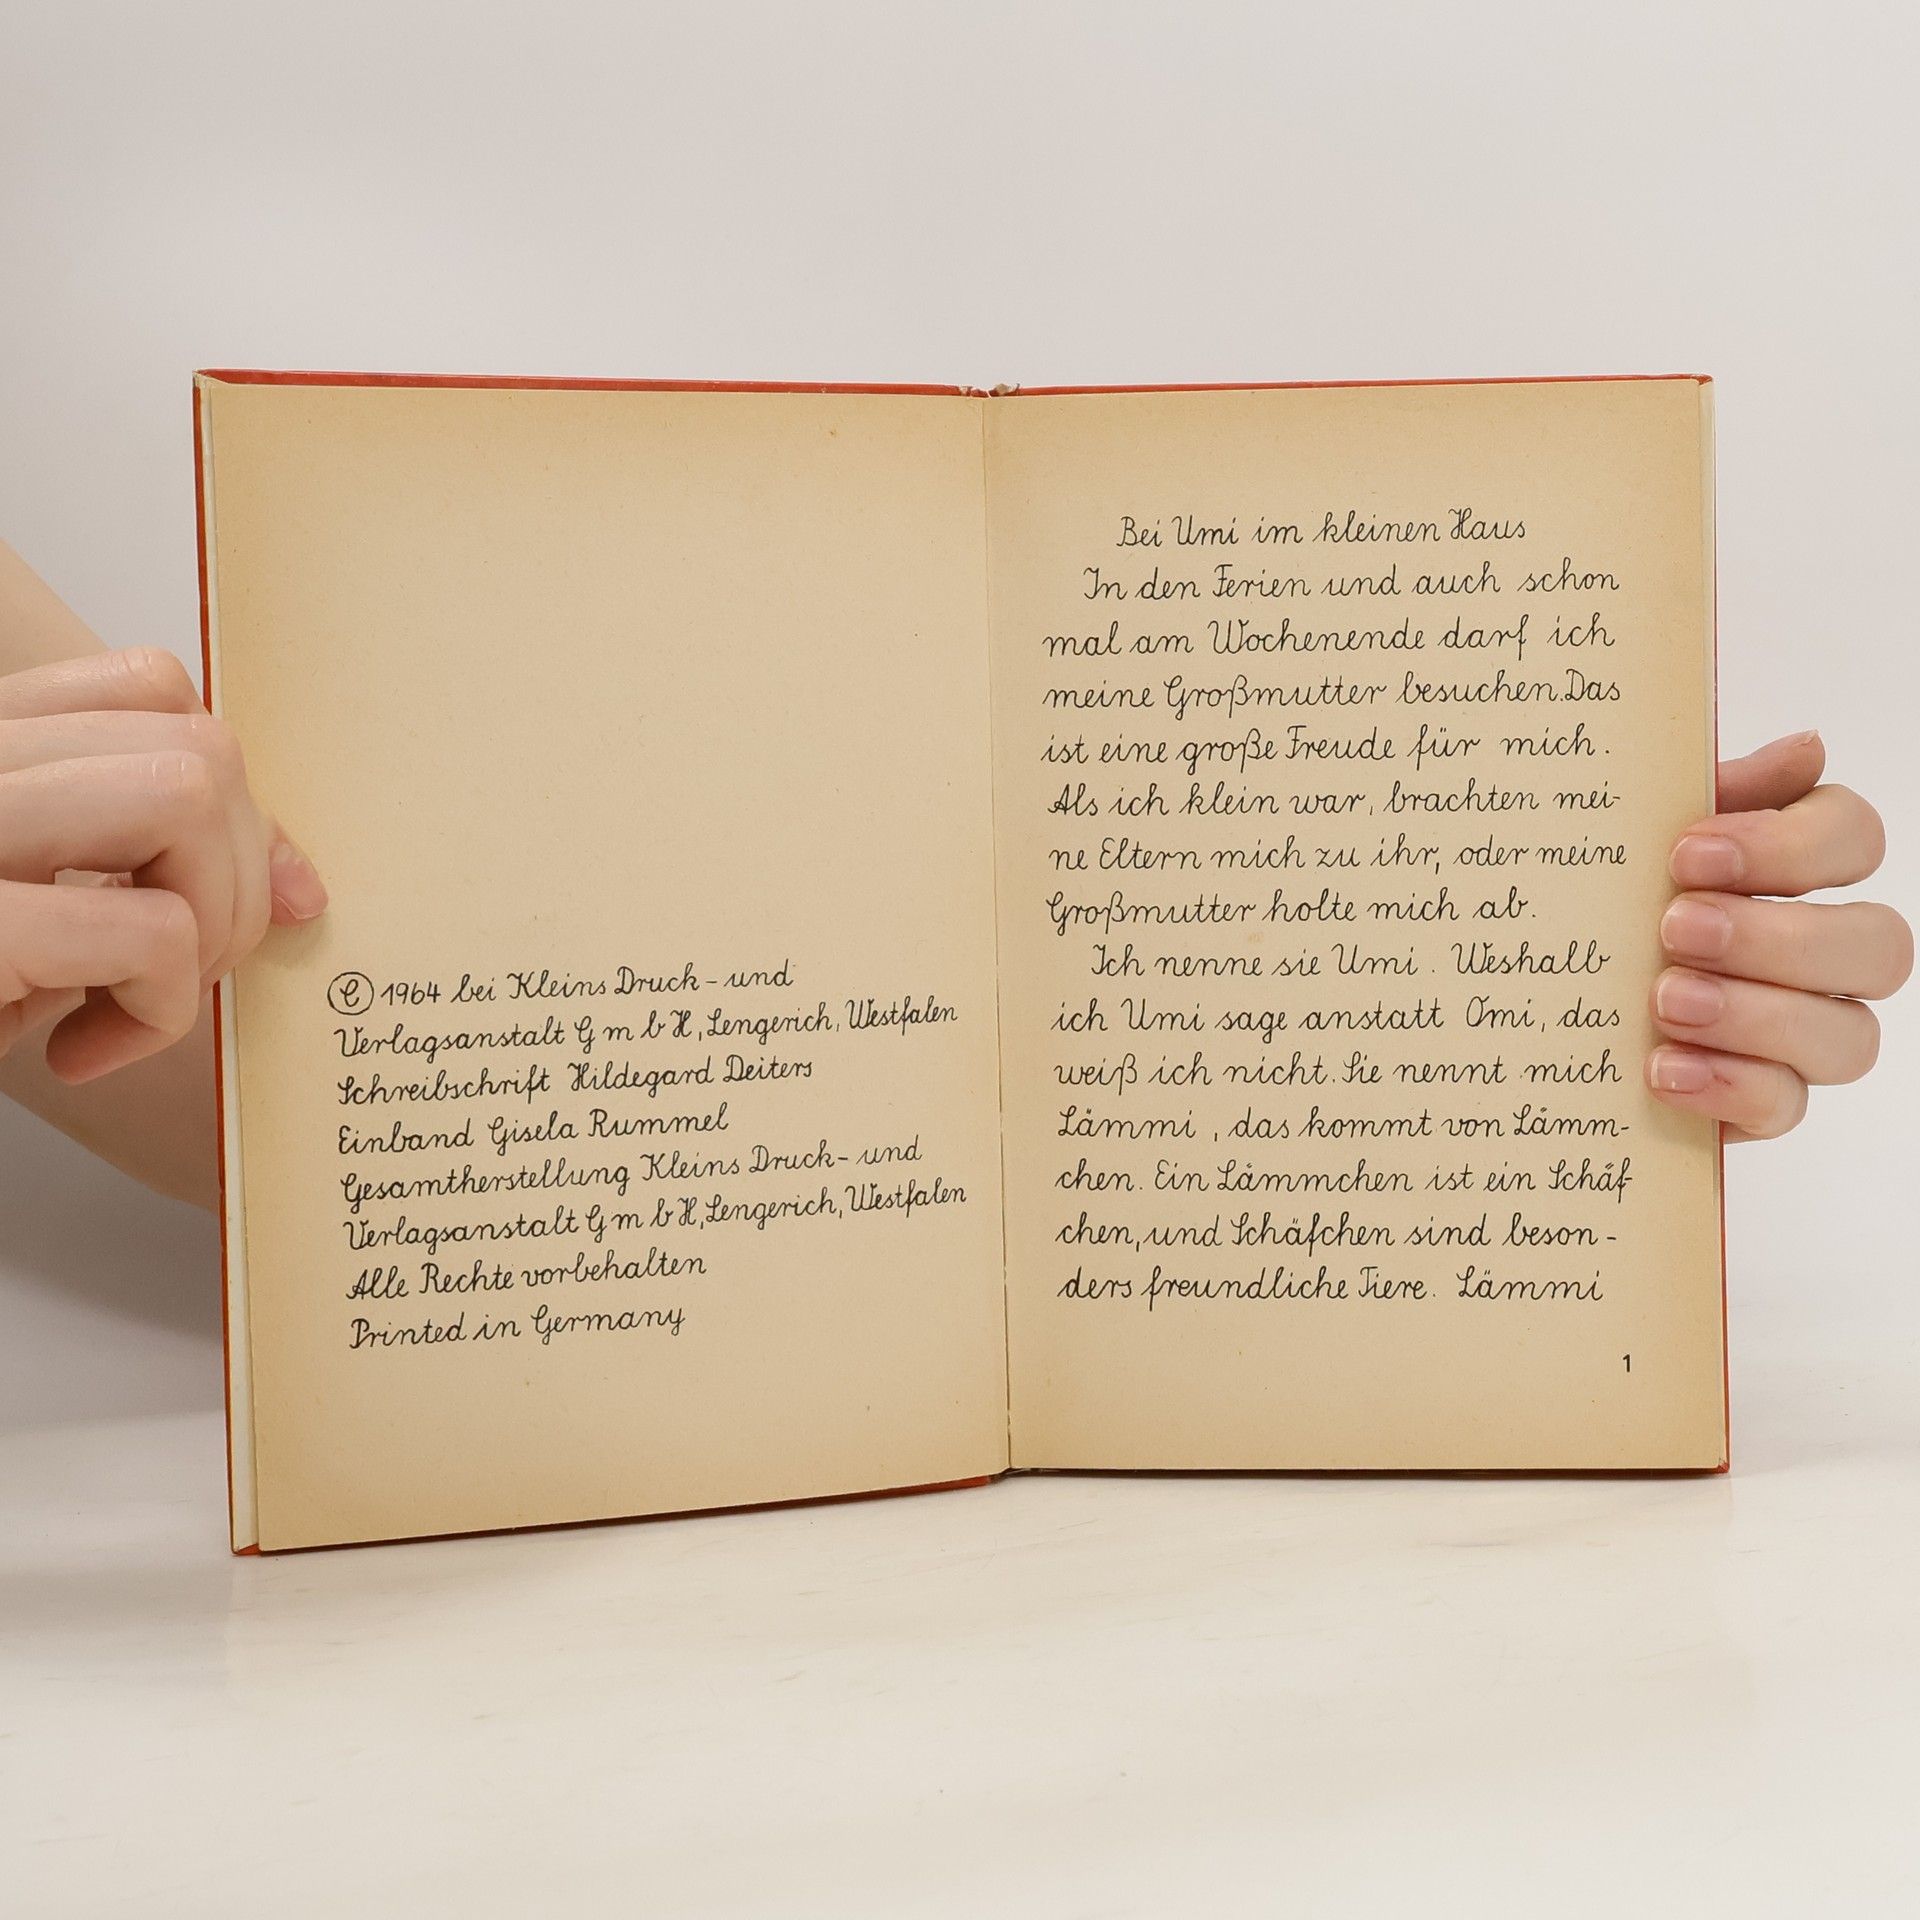 © 1964 bei Kleins Druck- und
Verlagsanstalt G m b H, Lengerich, Westfalen
Schreibschrift Hildegard Deiters
Einband Gisela Rummel
Gesamtherstellung Kleins Druck- und
Verlagsanstalt G m b H, Lengerich, Westfalen
Alle Rechte vorbehalten
Printed in Germany
Bei Umi im kleinen Haus
In den Ferien und auch schon
mal am Wochenende darf ich
meine Großmutter besuchen. Das
ist eine große Freude für mich.
Als ich klein war, brachten mei-
ne Eltern mich zu ihr, oder meine
Großmutter holte mich ab.
Ich nenne sie Umi. Weshalb
ich Umi sage anstatt Omi, das
weiß ich nicht. Sie nennt mich
Lämmi, das kommt von Lämm-
chen. Ein Lämmchen ist ein Schäf-
chen, und Schäfchen sind beson-
ders freundliche Tiere. Lämmi
1